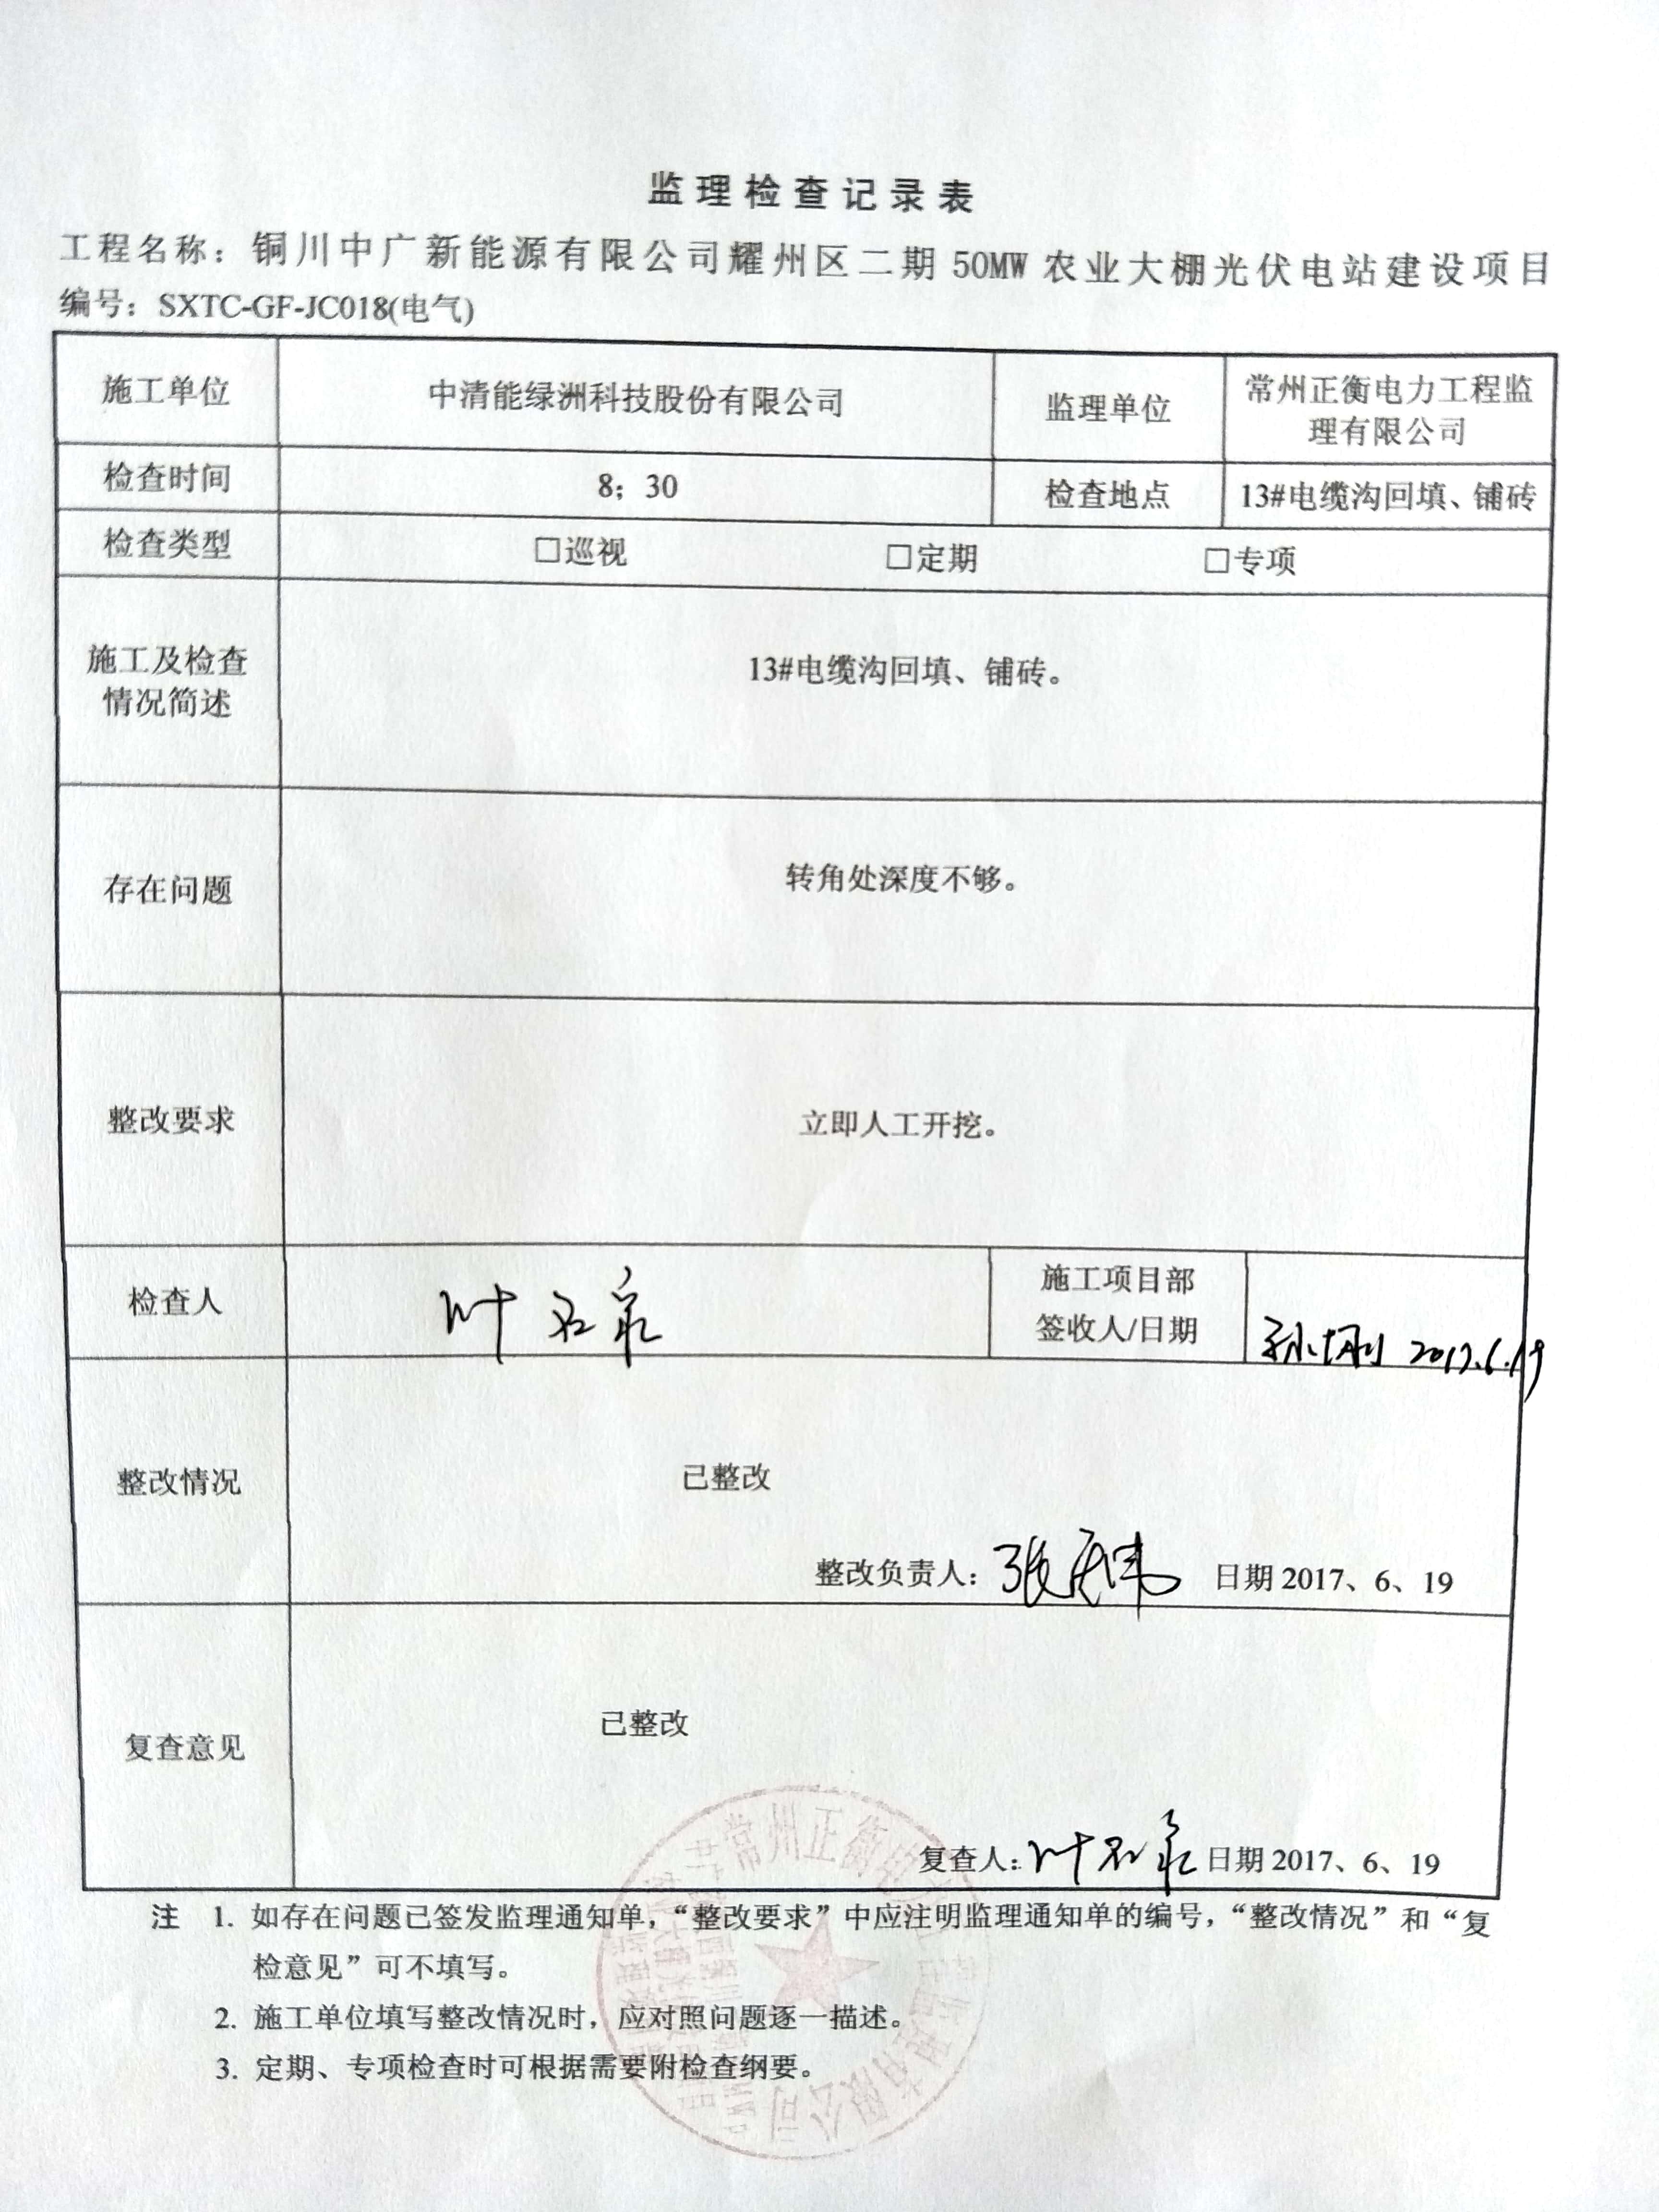 监理检查记录表
工程名称：铜川中广新能源有限公司耀州区二期 50MW 农业大棚光伏电站建设项目
编号：SXTC-GF-JC018(电气)
施工单位
中清能绿洲科技股份有限公司
监理单位
常州正衡电力工程监
理有限公司
检查时间
8；30
检查地点
13#电缆沟回填、铺砖
检查类型
□巡视 □定期 □专项
施工及检查
情况简述
13#电缆沟回填、铺砖。
存在问题
转角处深度不够。
整改要求
立即人工开挖。
检查人
叶
施工项目部
签收人/日期
孙 2017.6.19
整改情况
已整改
整改负责人： 张 日期 2017、6、19
复查意见
已整改
复查人： 叶 日期 2017、6、19
注 1. 如存在问题已签发监理通知单，“整改要求”中应注明监理通知单的编号，“整改情况”和“复
检意见”可不填写。
2. 施工单位填写整改情况时，应对照问题逐一描述。
3. 定期、专项检查时可根据需要附检查纲要。
常州正衡电力工程监理有限公司